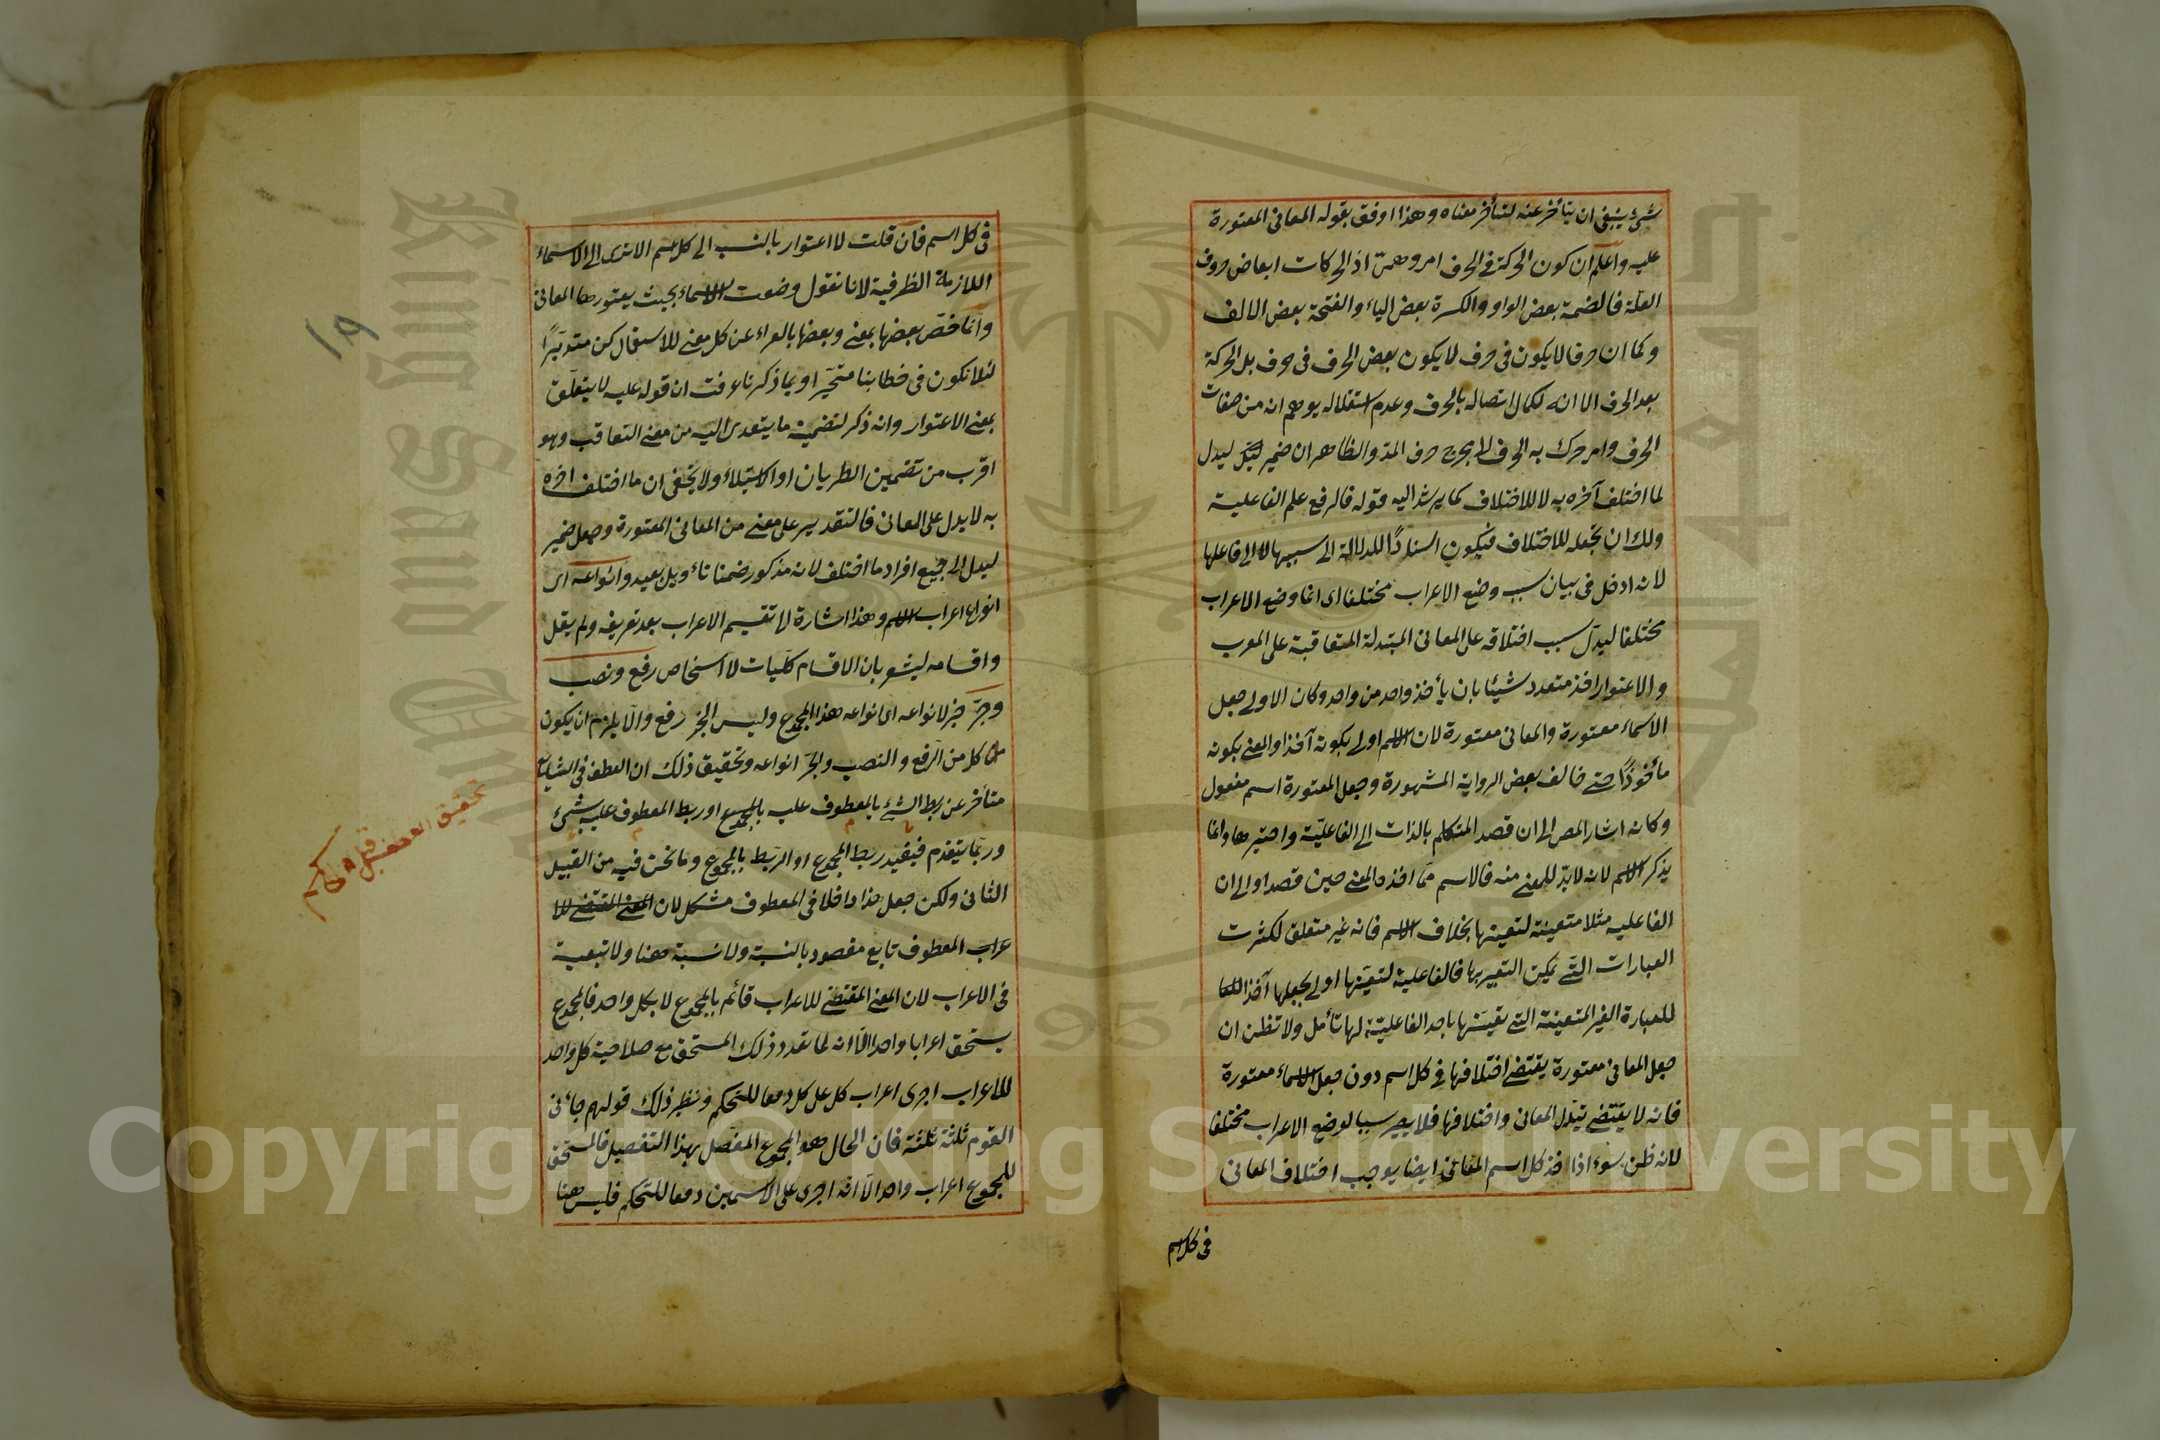 شئ ينبغى ان يتأخر عنه لتأخر معناه وهذا اوفق بقوله المعانى المعتورة
عليه واعلم ان كون الحركة فى الحرف امر وهمى اذ الحركات ابعاض حروف
العلة فالضمة بعض الواو والكسرة بعض الياء والفتحة بعض الالف
وكما ان حرفا لا يكون فى حرف لا يكون بعض الحرف فى حرف بل الحركة
بعد الحرف الا انه لكمال اتصاله بالحرف وعدم استقلاله يوهم انه من صفات
الحرف وامر حرك به الحرف لا حرف المد والظاهر ان ضمير ليدل
لما اختلف آخره به لا للاختلاف كما يرشد اليه قوله فالرفع علم الفاعلية
ولك ان تجعله للاختلاف فيكون اسنادًا للدلالة الى سببها لا الى فاعلها
لانه ادخل فى بيان سبب وضع الاعراب مختلفا اى انما وضع الاعراب
مختلفا ليدل سبب اختلافه على المعانى المتبدلة المتعاقبة على المعرب
والاعتوار اخذ متعدد شيئا بان يأخذ واحد من واحد وكان الاولى جعل
الاسماء معتورة والمعانى معتورة لان الاسم اولى بكونه آخذا والمعنى بكونه
مأخوذًا حتى خالف بعض الرواية المشهورة وجعل المعتورة اسم مفعول
وكانه اشار المص الى ان قصد المتكلم بالذات الى الفاعلية واختيرها وانما
يذكر الاسم لانه لابد للمعنى منه فالاسم مما اخذه المعنى حين قصد او الى ان
الفاعلية مثلا متعينة لتعينها بخلاف الاسم فانه غير متعلق لكثرت
العبارات التى يمكن التعبير بها فالفاعلية لتعينها اولى بجعلها آخذا
للعبارة الغير المتعينة التى تعينها باحد الفاعلية لها تأمل ولا تظن ان
جعل المعانى معتورة يقتضى اختلافها فى كل اسم دون جعل الاسماء معتورة
فانه لا يقتضى تبدل المعانى واختلافها فلا يصير سببا لوضع الاعراب مختلفا
لانه ظن سوء اذا اخذ كل اسم المعانى ايضا يوجب اختلاف المعانى
فى كل اسم
فى كل اسم فان قلت لا اعتوار بالنسب الى كل اسم الا ترى الى الاسماء
اللازمة الظرفية لانا نقول وضعت الاسماء بحيث يعتورها المعانى
وانما خص بعضها بمعنى وبعضها بالعراء عن كل معنى للاستعمال كن متدبرًا
لئلا تكون فى خطابنا متحيرا وبما ذكرنا عرفت ان قوله عليه لا يتعلق
بمعنى الاعتوار وانه ذكر لتضمينه ما يتعدى اليه من معنى التعاقب وهو
اقرب من تضمين الطريان او الاستيلاء ولا يخفى ان ما اختلف آخره
به لا يدل على المعانى فالتقدير على معنى من المعانى المعتورة وجعل ضمير
ليدل الى جميع افراد ما اختلف لانه مذكور ضمنا تأويل بعيد وانواعه اى
انواع اعراب الاسم وهذا اشارة الى تقسيم الاعراب بعد تعريفه ولم يقل
واقسامه ليشعر بان الاقسام كليات لا اشخاص رفع ونصب
وجر خبر لانواعه اى انواعه هذا المجموع وليس الخبر رفع والا يلزم ان يكون
كل من الرفع والنصب والجر انواعه وتحقيق ذلك ان العطف فى
متأخر عن ربط الشئ بالمعطوف عليه بالمجموع او ربط المعطوف عليه بشئ
وربما يتقدم فيفيد ربط المجموع او الربط بالمجموع وما نحن فيه من القبيل
الثانى ولكن جعل هذا داخلا فى المعطوف مشكل لان المعنى المقتضى للا
عراب المعطوف تابع مقصود بالنسبة ولا نسبة ههنا ولا تبعية
فى الاعراب لان المعنى المقتضى للاعراب قائم بالمجموع لا بكل واحد فالمجموع
يستحق اعرابا واحدا الا انه لما تعدد ذلك المستحق مع صلاحية كل واحد
للاعراب اجرى اعراب كل على كل دفعا للتحكم ونظير ذلك قولهم جائنى
القوم ثلثة ثلثة فان الحال هو المجموع المفصل بهذا التفصيل فالمستحق
للمجموع اعراب واحد الا انه اجرى على الاسمين دفعا للتحكم فليس ههنا
١٩
تحقيق العطف قبل الحكم
Copyright © King Saud University
King Saud University
1957